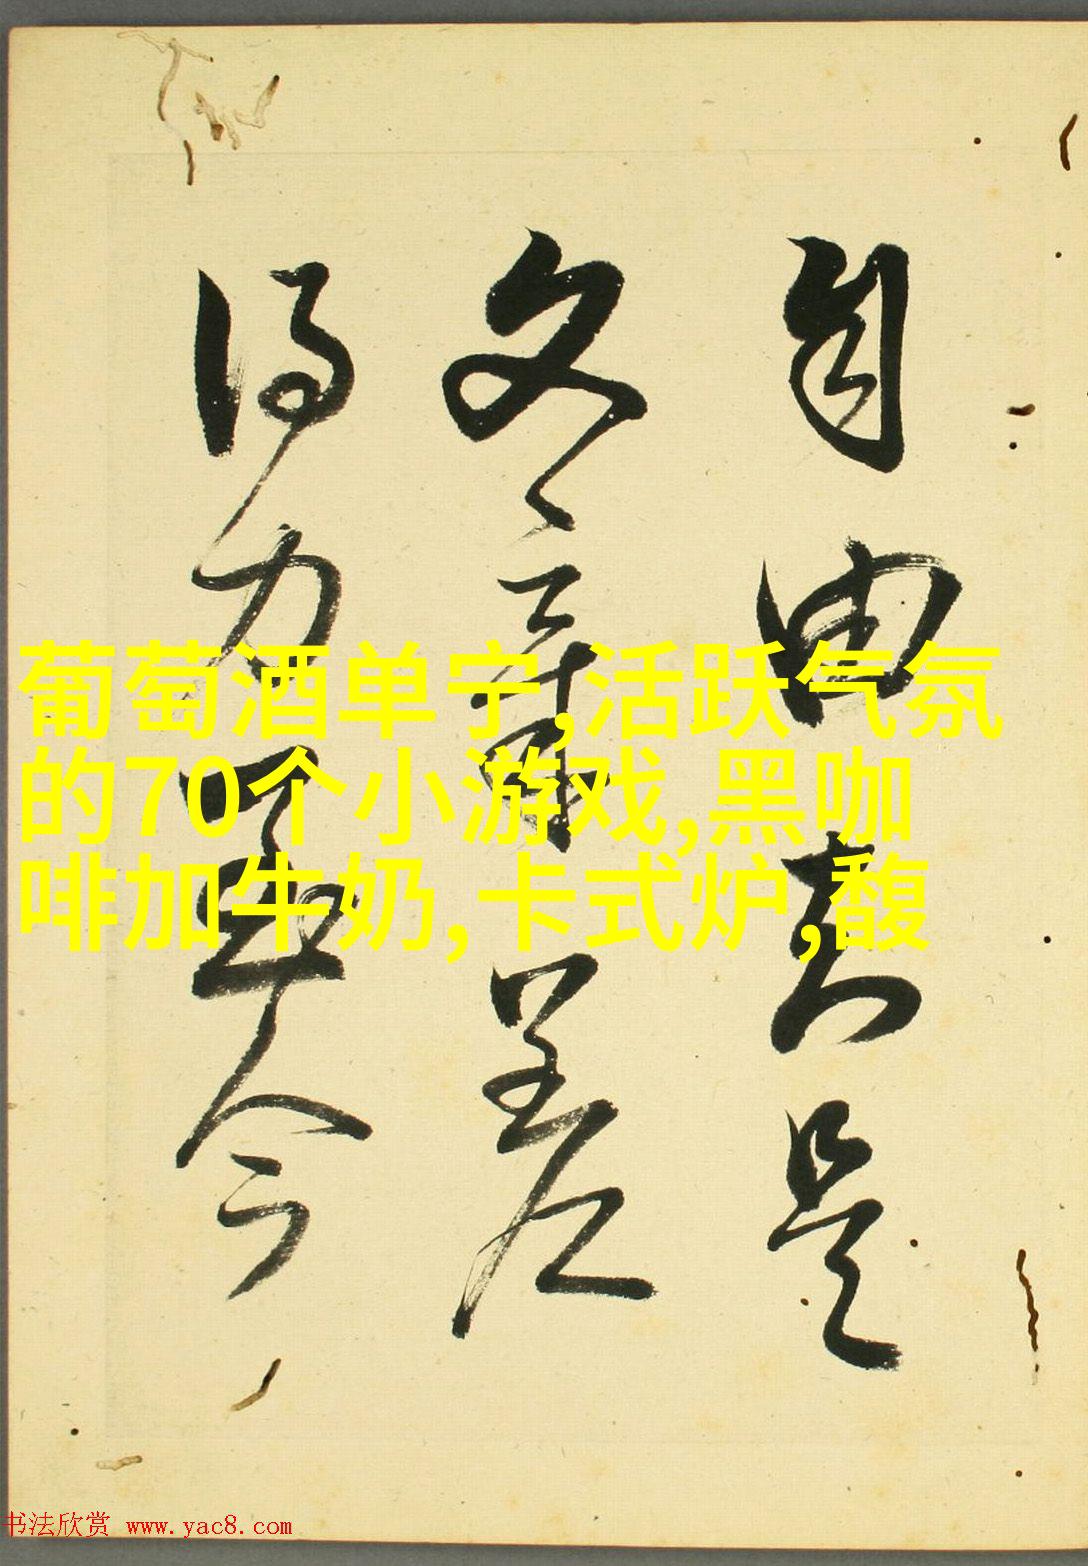 自由是
文章
得力今
葡萄酒单宁,活跃气氛
的70个小游戏,黑咖
啡加牛奶,卡式炉,馥
书法欣赏 www.yac8.com